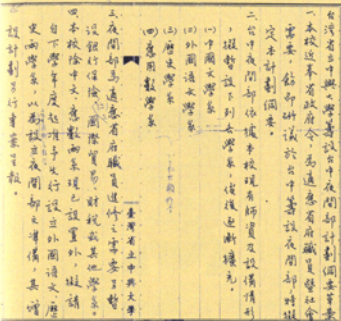 台灣省立中興大學籌設台中夜間部計劃綱要草案
一、本校近奉省政府令，為適應省府職員暨社會
需要，飭即研議於台中籌設夜間部，特擬
定本計劃綱要。
二、台中夜間部依據本校現有師資及設備情形
，擬暫設下列各學系，俟後逐漸擴充。
(一)中國文學系
(二)外國語文學系
(三)歷史學系
(四)應用數學系
臺灣省立中興大學
三、夜間部為適應省府職員進修之需要，
設銀行保險、國際貿易、財稅或其他學系。
四、本校除中文、應數兩系現已設置外，擬請
自下學年度起准予先行設立外國語文、歷
史兩學系，以為設立夜間部之準備，其增
設計劃另行專案呈報。